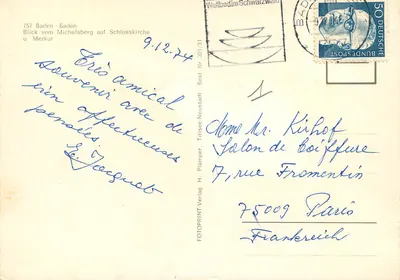 757 Baden-Baden
Blick vom Michelsberg auf Schlosskirche
u. Merkur
9.12.74
Très amical
souvenir avec de
bien affectueuses
pensées.
Weltbad im Schwarzwald
50
DEUTSCHE
BUNDESPOST
1
Mme Mr. Kirhof
Salon de Coiffure
7, rue Fromentin
75009 Paris
Frankreich
FOTOPRINT-Verlag H. Pfämpfer Titisee-Neustadt Best. Nr. 301/31